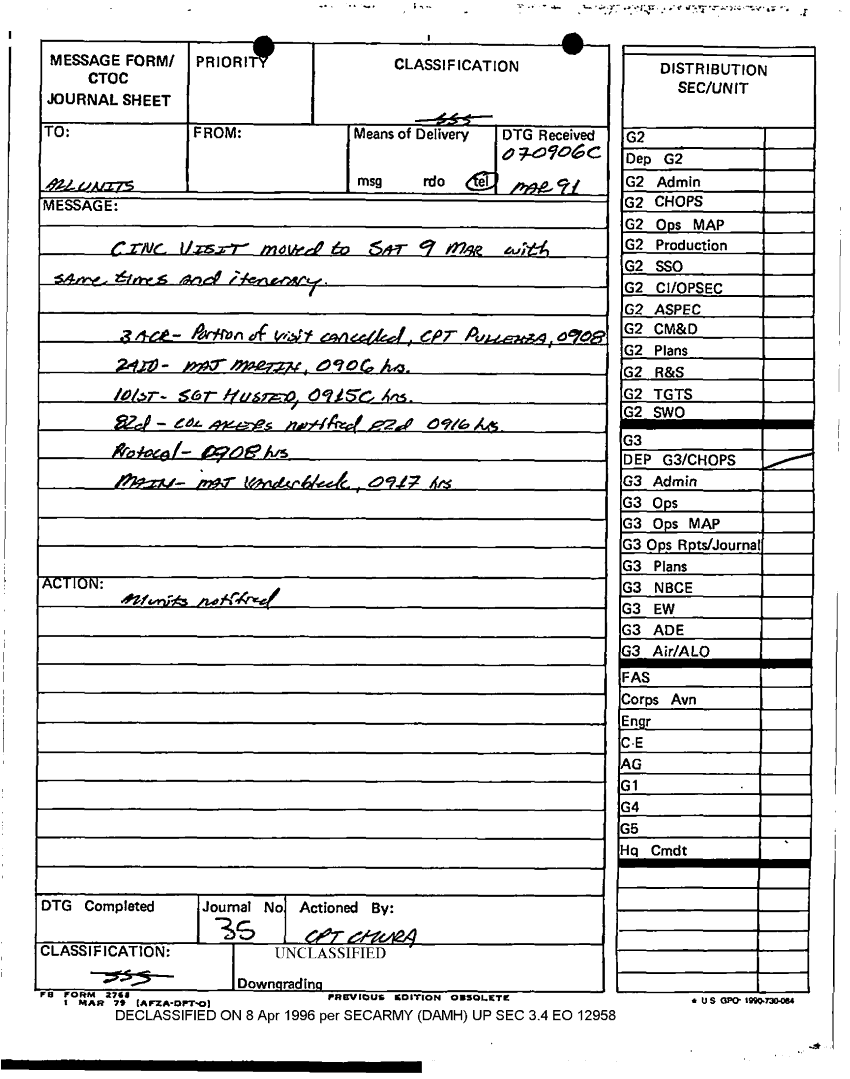 MESSAGE FORM/
CTOC
JOURNAL SHEET
PRIORITY
CLASSIFICATION
SSS
TO:
ALL UNITS
FROM:
Means of Delivery
msg rdo tel
DTG Received
070906C
MAR 91
MESSAGE:
CINC VISIT moved to SAT 9 MAR with
same times and itenerary.
3 ACR- Portion of visit cancelled, CPT 0908
24ID- MAJ MARTIN, 0906 hrs.
101ST- SGT HUSTED, 0915C hrs.
82d - COL AKERS notified 82d 0916 hrs.
Protocal- 0908 hrs
MAIN- MAJ Vanderbleek, 0917 hrs
ACTION:
All units notified
DTG Completed
Journal No.
35
Actioned By:
CPT CHURA
CLASSIFICATION:
SSS
UNCLASSIFIED
Downgrading
FB FORM 2768
1 MAR 79 [AFZA-DPT-O]
PREVIOUS EDITION OBSOLETE
DISTRIBUTION
SEC/UNIT
G2
Dep G2
G2 Admin
G2 CHOPS
G2 Ops MAP
G2 Production
G2 SSO
G2 CI/OPSEC
G2 ASPEC
G2 CM&D
G2 Plans
G2 R&S
G2 TGTS
G2 SWO
G3
DEP G3/CHOPS
G3 Admin
G3 Ops
G3 Ops MAP
G3 Ops Rpts/Journal
G3 Plans
G3 NBCE
G3 EW
G3 ADE
G3 Air/ALO
FAS
Corps Avn
Engr
C-E
AG
G1
G4
G5
Hq Cmdt
* U S GPO- 1990-730-064
DECLASSIFIED ON 8 Apr 1996 per SECARMY (DAMH) UP SEC 3.4 EO 12958